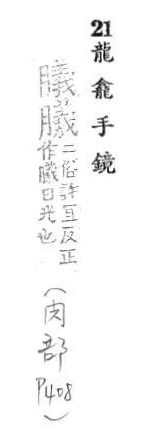 21 龍龕手鏡
二俗許互反正
作曦日光也
(肉部 P408)